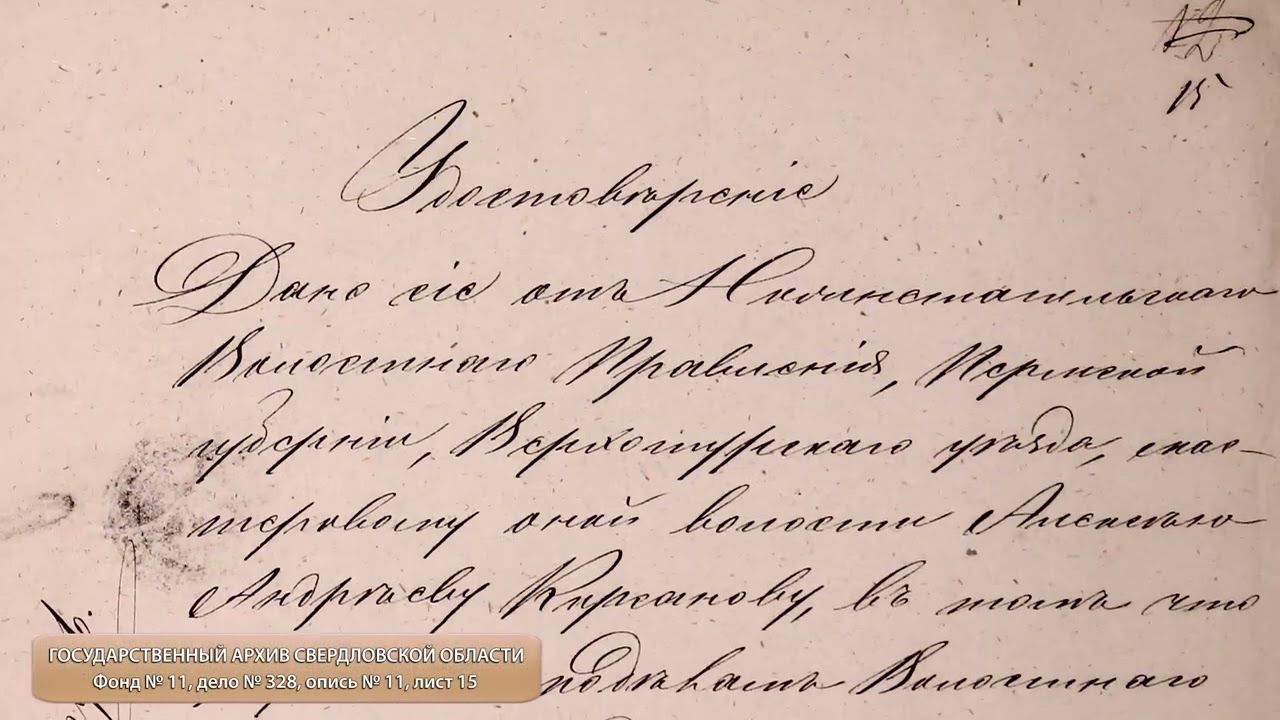 15
Удостовѣреніе
Дано сіе отъ
Волостнаго Правленія, Пермской
губерніи, Верхотурскаго уѣзда, мас-
теровому оной волости Алексѣю
Андрѣеву Кирсанову, въ томъ что
Волостнаго
ГОСУДАРСТВЕННЫЙ АРХИВ СВЕРДЛОВСКОЙ ОБЛАСТИ
Фонд № 11, дело № 328, опись № 11, лист 15